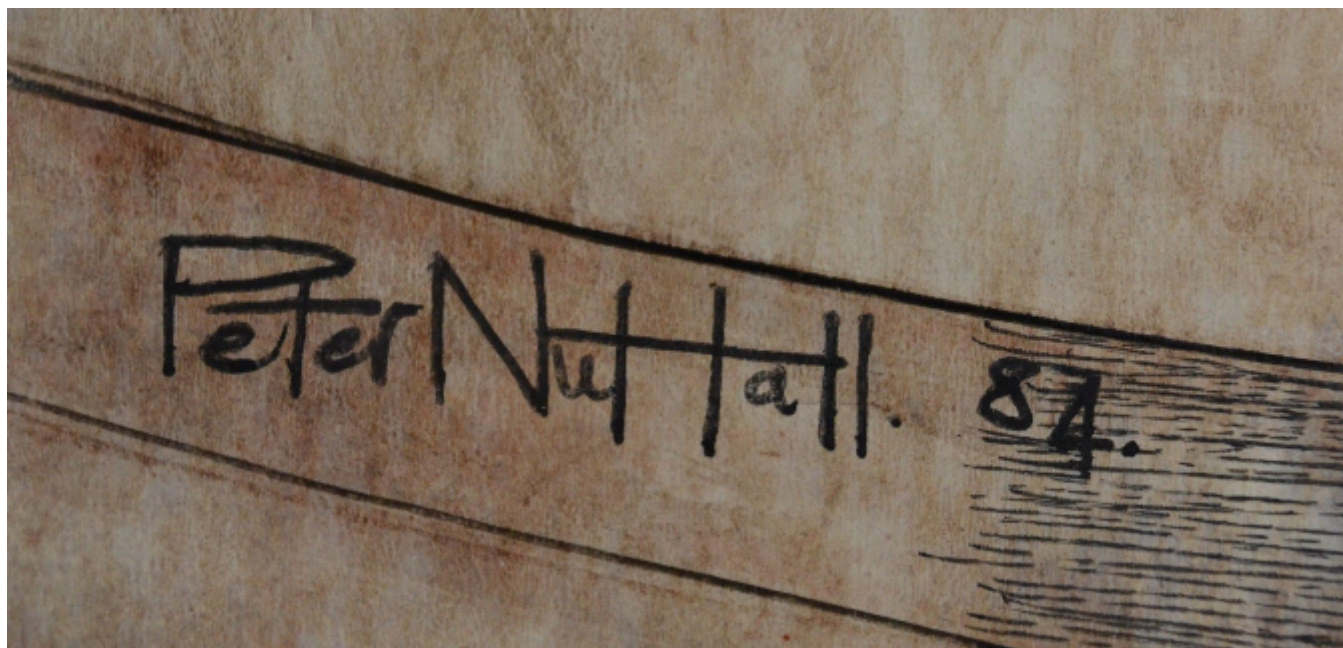 Peter Nuttall. 84.